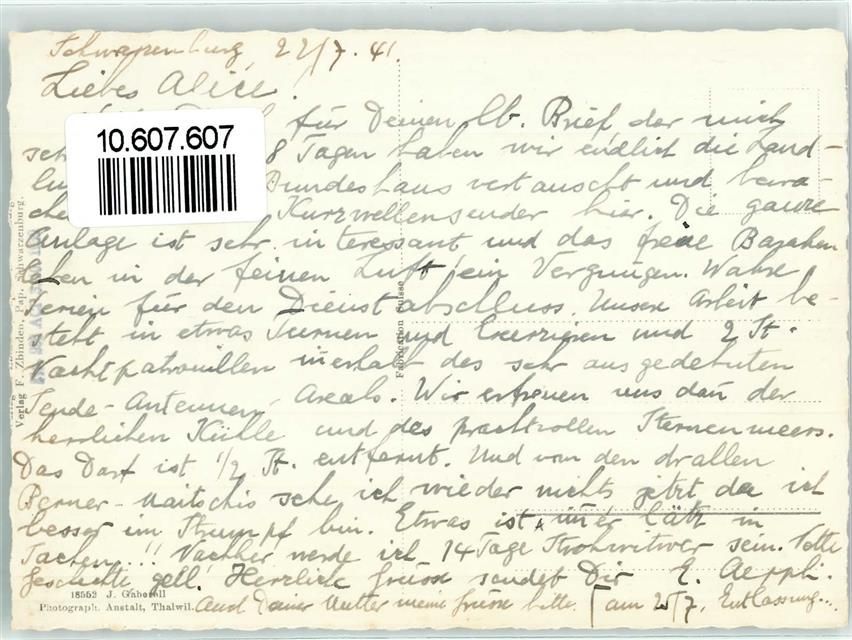 Schwarzenburg, 22/7. 41.
Liebes Alice!
für Deinen lb. Brief, der mich
8 Tagen haben wir endlich die Land-
Bundeshaus vertauscht und bewa-
Kurzwellensender hier. Die ganze
Anlage ist sehr interessant und das freie Baraken
leben in der feinen Luft ein Vergnügen. Wahre
Ferien für den Dienstabschluss. Unsere Arbeit be-
steht in etwas Turnen und Exerzieren und 2 St.
Nachtpatrouillen inerhalb des sehr ausgedehnten
Sende-Antennen-Areals. Wir erfreuen uns dan der
herrlichen Kühle und des prachtvollen Sternenmeers.
Das Dorf ist 1/2 St. entfernt. Und von den drallen
Berner-Maitschis sehe ich wieder nichts jetzt da ich
besser im Strumpf bin. Etwas ist im'er lätz in
Sachen..!! Nachher werde ich 14 Tage Strohwitwer sein. Tolle
Geschichte gell. Herzliche Grüsse sendet Dir E. Aeppli.
Auch Deiner Mutter meine Grüsse bitte. am 25/7. Entlassung...
10.607.607
Verlag F. Zbinden, Pap. Schwarzenburg.
Fabrication Suisse
18552 J. Gaberell
Photograph. Anstalt, Thalwil.